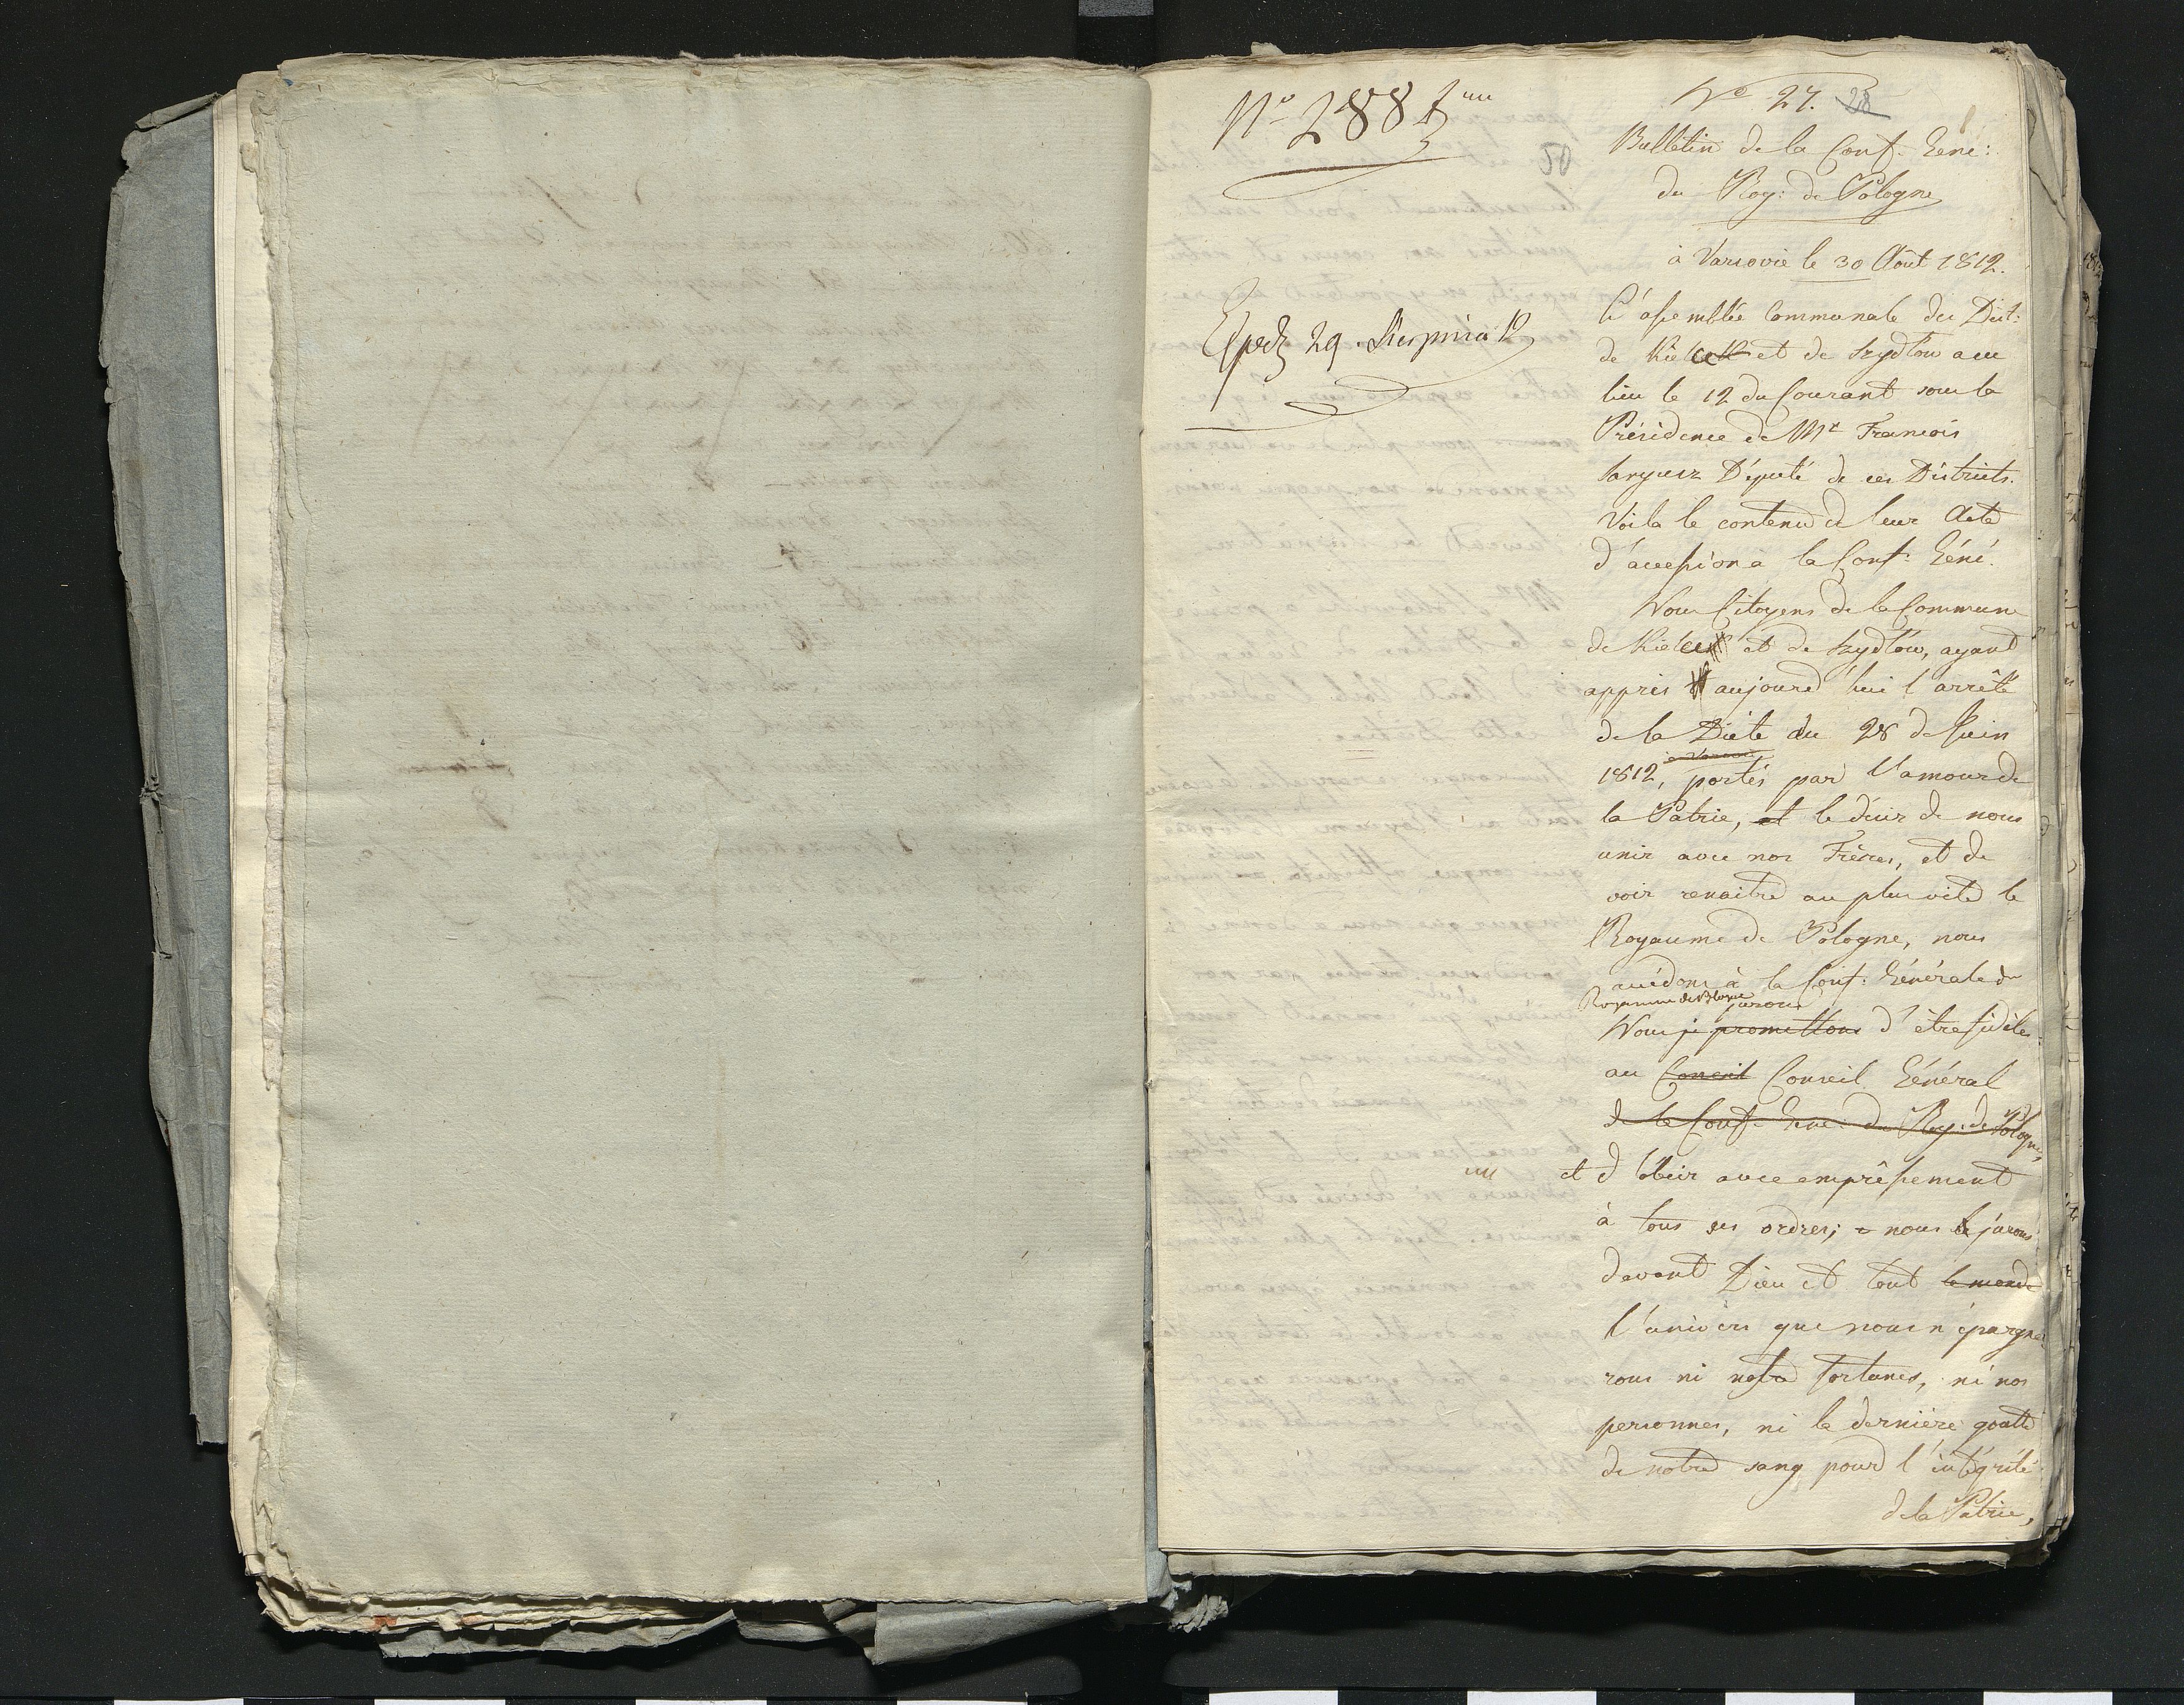 No 288
50
Exped 29. Sierpnia 12
No 27. 28
Bulletin de la Conf. Géné:
du Roy: de Pologne
à Varsovie le 30 Août 1812.
L'assemblée Communale des Dist:
de Kielce et de Szydłow a eu
lieu le 12 du Courant sous la
Présidence de Mr François
Député de ces Districts.
Voila le contenu de leur Acte
d'accession à la Conf. Géné.
Nous Citoyens de la Commune
de Kielce et de Szydłow, ayant
appris aujourd'hui l'arrêté
de la Diète du 28 de Juin
à Varsovie
1812, portés par l'amour de
la Patrie, et le désir de nous
unir avec nos Frères, et de
voir renaitre au plus vite le
Royaume de Pologne, nous
accédons à la Conf. Générale du
Royaume de Pologne jurons
Nous promettons d'être fidèles
au Conseil Conseil Général
de la Conf. Géné: du Roy: de Pologne,
et d'obéir avec empressement
à tous ses ordres; nous le jurons
devant Dieu et tout le monde
l'univers que nous n'épargne
rons ni notre fortunes, ni nos
personnes, ni la dernière goutte
de notre sang pour l'intégrité
de la Patrie,